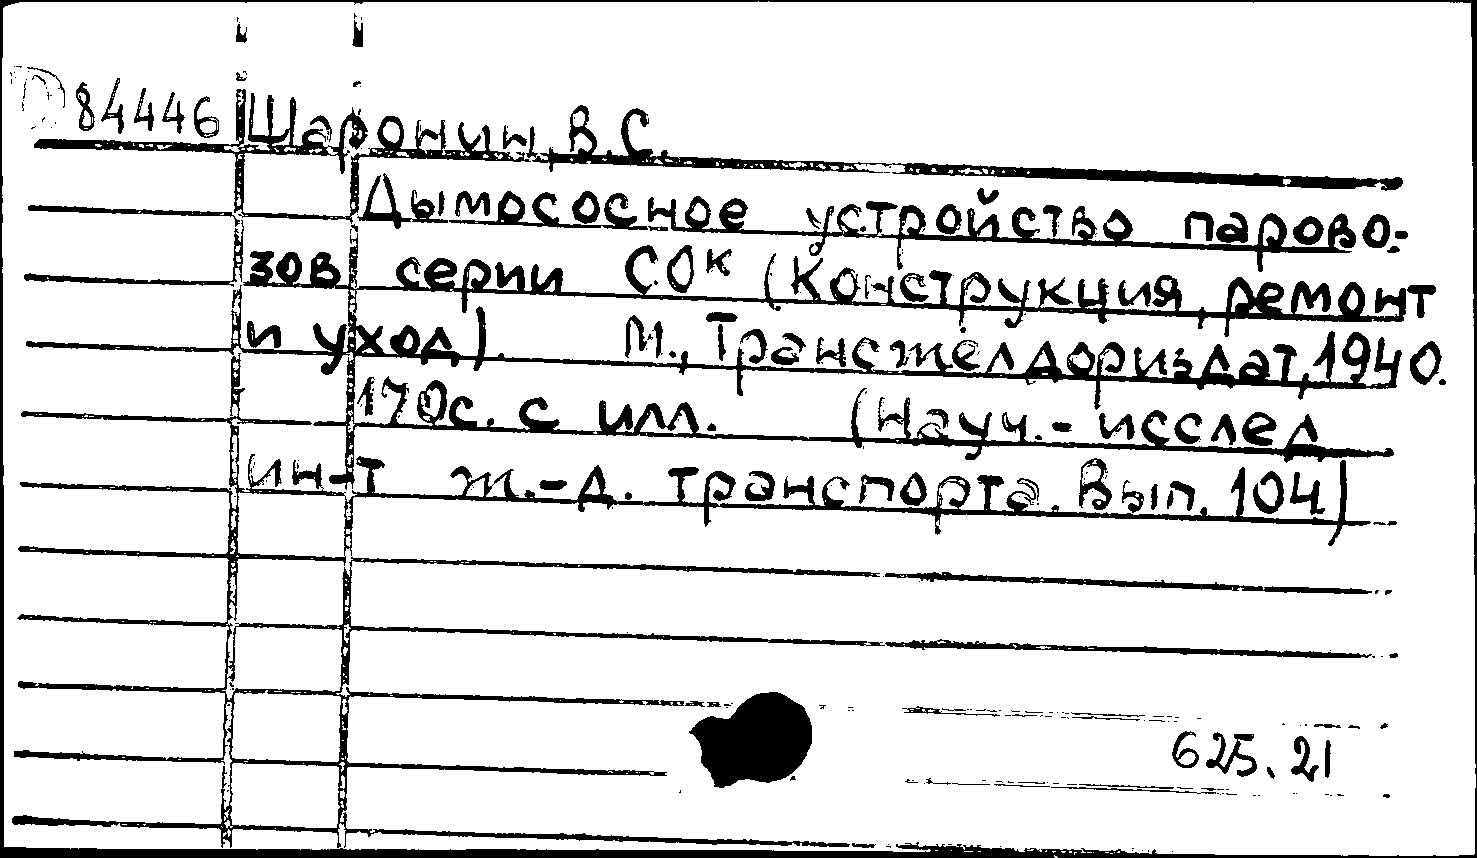 84446 Шаронин, В.С.
Дымососное устройство парово-
зов серии СОк (Конструкция, ремонт
и уход). М., Трансжелдориздат, 1940.
170с. с илл. (Науч.-исслед
ин-т ж.-д. транспорта. Вып. 104)
625.21